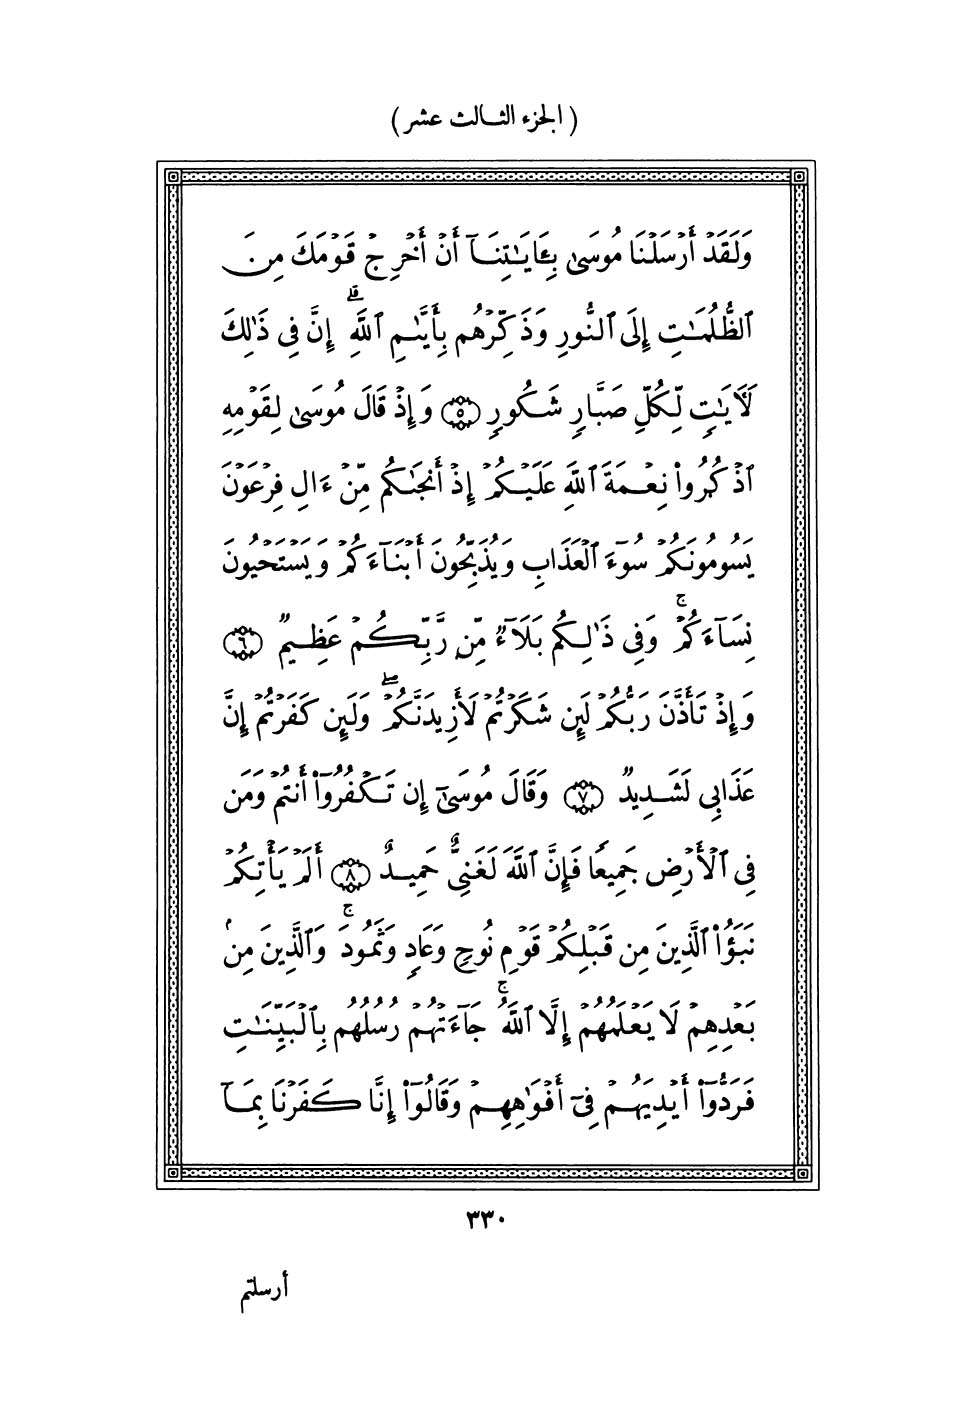 (الجزء الثالث عشر)
وَلَقَدْ أَرْسَلْنَا مُوسَىٰ بِـَٔايَـٰتِنَآ أَنْ أَخْرِجْ قَوْمَكَ مِنَ
ٱلظُّلُمَـٰتِ إِلَى ٱلنُّورِ وَذَكِّرْهُم بِأَيَّىٰمِ ٱللَّهِ ۚ إِنَّ فِى ذَٰلِكَ
لَـَٔايَـٰتٍ لِّكُلِّ صَبَّارٍ شَكُورٍ ۝٥ وَإِذْ قَالَ مُوسَىٰ لِقَوْمِهِ
ٱذْكُرُوا۟ نِعْمَةَ ٱللَّهِ عَلَيْكُمْ إِذْ أَنجَىٰكُم مِّنْ ءَالِ فِرْعَوْنَ
يَسُومُونَكُمْ سُوٓءَ ٱلْعَذَابِ وَيُذَبِّحُونَ أَبْنَآءَكُمْ وَيَسْتَحْيُونَ
نِسَآءَكُمْ ۚ وَفِى ذَٰلِكُم بَلَآءٌ مِّن رَّبِّكُمْ عَظِيمٌ ۝٦
وَإِذْ تَأَذَّنَ رَبُّكُمْ لَئِن شَكَرْتُمْ لَأَزِيدَنَّكُمْ ۖ وَلَئِن كَفَرْتُمْ إِنَّ
عَذَابِى لَشَدِيدٌ ۝٧ وَقَالَ مُوسَىٰٓ إِن تَكْفُرُوٓا۟ أَنتُمْ وَمَن
فِى ٱلْأَرْضِ جَمِيعًا فَإِنَّ ٱللَّهَ لَغَنِىٌّ حَمِيدٌ ۝٨ أَلَمْ يَأْتِكُمْ
نَبَؤُا۟ ٱلَّذِينَ مِن قَبْلِكُمْ قَوْمِ نُوحٍ وَعَادٍ وَثَمُودَ ۚ وَٱلَّذِينَ مِنۢ
بَعْدِهِمْ لَا يَعْلَمُهُمْ إِلَّا ٱللَّهُ ۚ جَآءَتْهُمْ رُسُلُهُم بِٱلْبَيِّنَـٰتِ
فَرَدُّوٓا۟ أَيْدِيَهُمْ فِىٓ أَفْوَٰهِهِمْ وَقَالُوٓا۟ إِنَّا كَفَرْنَا بِمَآ
٣٣٠
أرسلتم